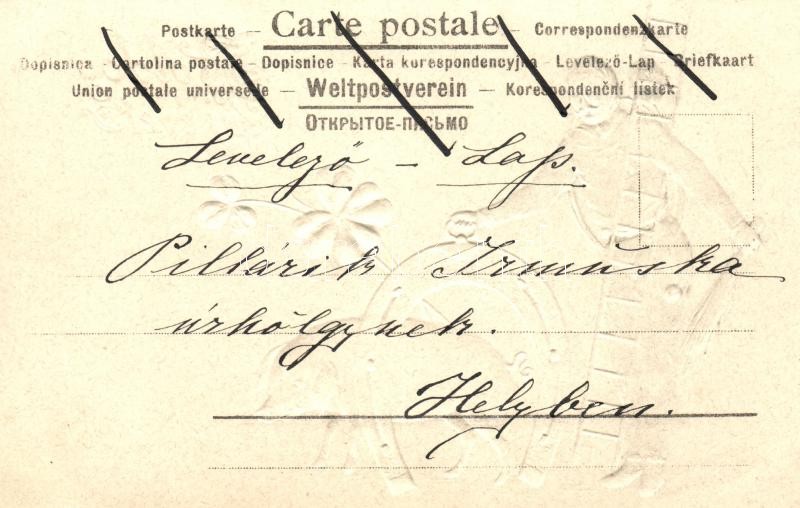 Postkarte – Carte postale – Correspondenzkarte
Dopisnica – Cartolina postale – Dopisnice – Karta korespondencyjna – Levelező-Lap – Briefkaart
Union postale universelle – Weltpostverein – Korespondenční lístek
ОТКРЫТОЕ-ПИСЬМО
Levelező – Lap.
Pillárik Irmuska
úrhölgynek.
Helyben.